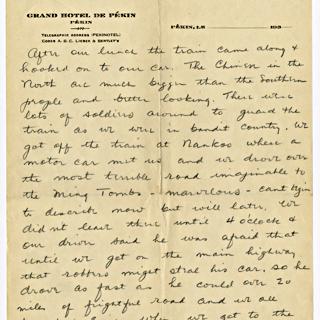 GRAND HOTEL DE PÉKIN
PÉKIN
TELEGRAPHIC ADDRESS (PEKINOTEL)
CODES A.B.C. LIEBER & BENTLEY'S
PÉKIN, LE 192
After our lunch the train came along &
hooked on to our car. The Chinese in the
North are much bigger than the Southern
people and better looking. There were
lots of soldiers around to guard the
train as we were in bandit country. We
got off the train at Nankoo where a
motor car met us and we drove over
the most terrible road imaginable to
the Ming Tombs - marvelous - cant begin
to describe now but will later. We
did not leave there until 4 o'clock &
our driver said he was afraid that
until we got on the main highway
that robbers might steal his car. so he
drove as fast as he could over 20
miles of frightful road and we all
when we got to the